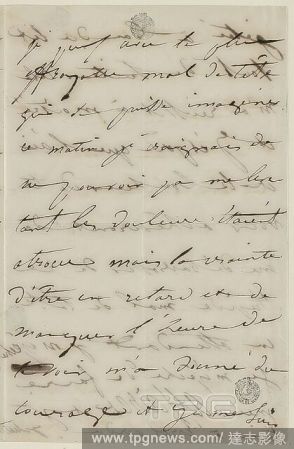 je puis avec la plus
effroyable mal de tête
qui se puisse imaginer
ce matin je craignais de
ne pouvoir pas me lever
tant les douleurs étaient
atroces mais la crainte
d'être en retard et de
manquer l'heure de
te voir m'a donné du
courage et je me suis
www.tpgnews.com / 達志影像